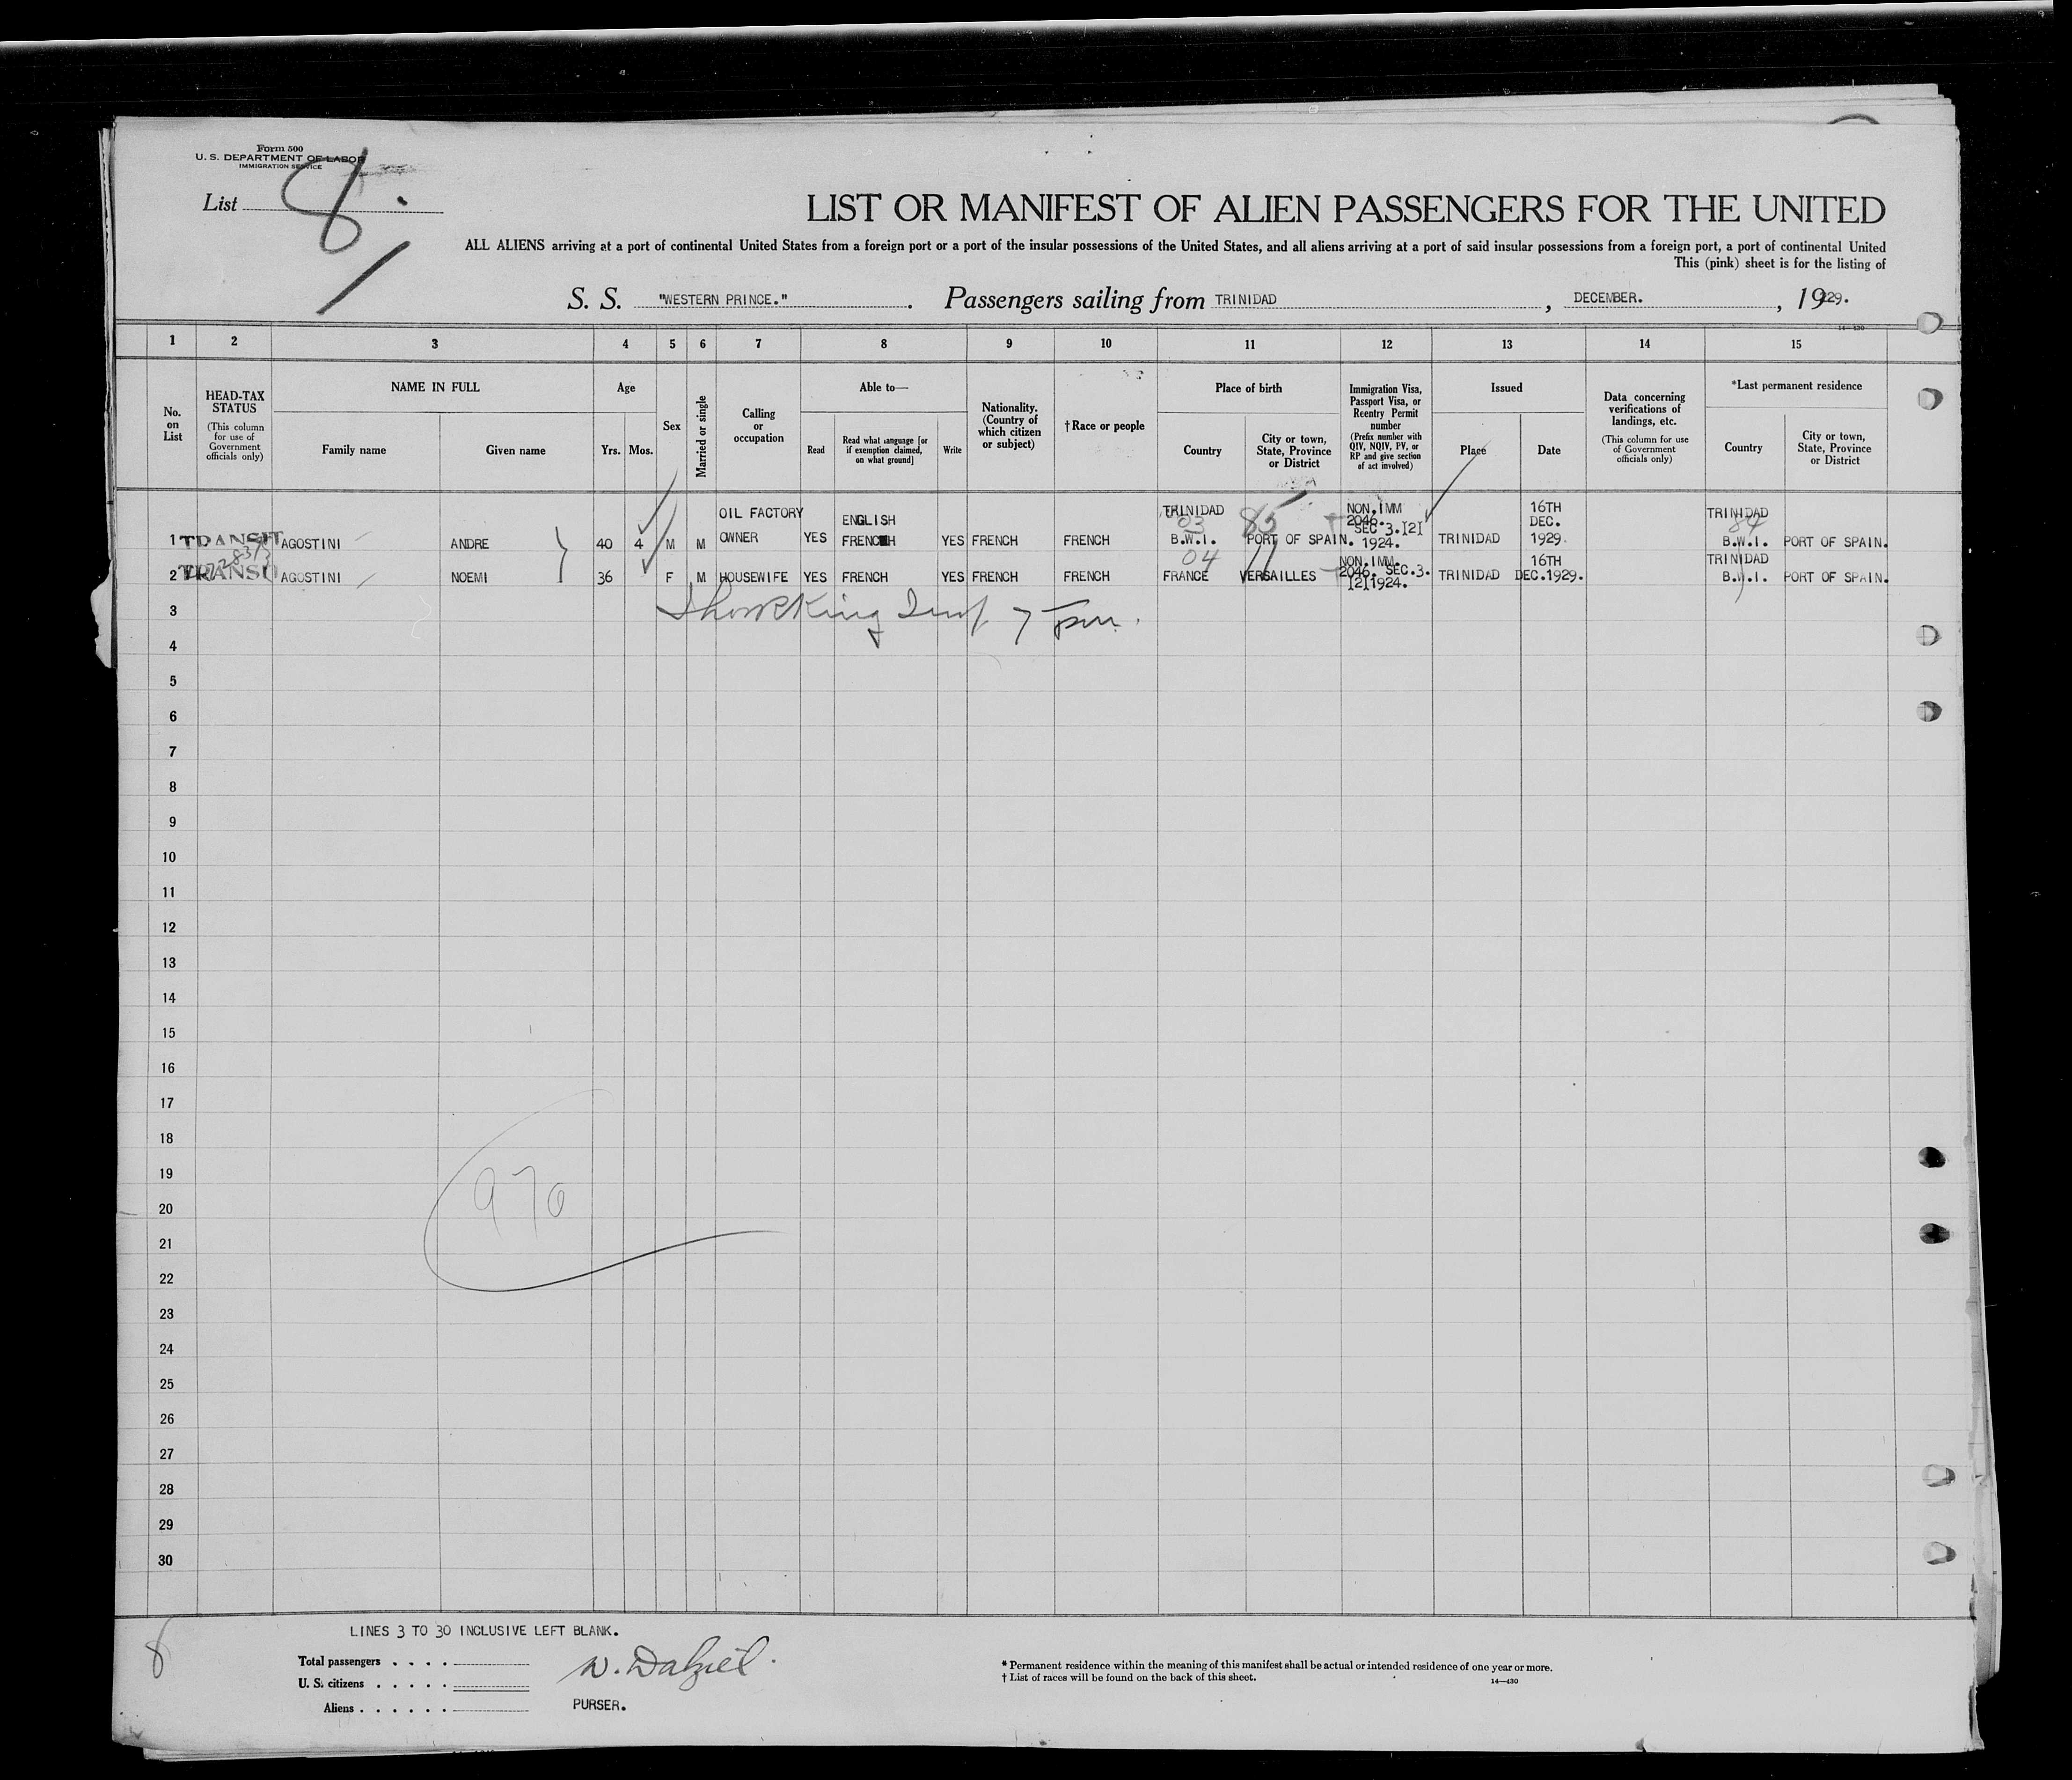 Form 500
U. S. DEPARTMENT OF LABOR
IMMIGRATION SERVICE
List 8.
LIST OR MANIFEST OF ALIEN PASSENGERS FOR THE UNITED
ALL ALIENS arriving at a port of continental United States from a foreign port or a port of the insular possessions of the United States, and all aliens arriving at a port of said insular possessions from a foreign port, a port of continental United
This (pink) sheet is for the listing of
S. S. "WESTERN PRINCE." . Passengers sailing from TRINIDAD , DECEMBER. , 1929.
14—430
1 2 3 4 5 6 7 8 9 10 11 12 13 14 15
No. on List
HEAD-TAX STATUS (This column for use of Government officials only)
NAME IN FULL
Family name Given name
Age
Yrs. Mos.
Sex
Married or single
Calling or occupation
Able to—
Read
Read what language [or if exemption claimed, on what ground]
Write
Nationality. (Country of which citizen or subject)
†Race or people
Place of birth
Country
City or town, State, Province or District
Immigration Visa, Passport Visa, or Reentry Permit number (Prefix number with QIV, NQIV, PV, or RP and give section of act involved)
Issued
Place Date
Data concerning verifications of landings, etc. (This column for use of Government officials only)
*Last permanent residence
Country
City or town, State, Province or District
1 TRANSIT AGOSTINI ANDRE 40 4 M M OIL FACTORY OWNER YES ENGLISH FRENCH YES FRENCH FRENCH TRINIDAD B.W.I. PORT OF SPAIN. NON.IMM 2046. SEC 3.[2] 1924. TRINIDAD 16TH DEC. 1929. TRINIDAD B.W.I. PORT OF SPAIN.
03 85 84
2 AGOSTINI NOEMI 36 F M HOUSEWIFE YES FRENCH YES FRENCH FRENCH FRANCE VERSAILLES NON.IMM. 2046. SEC.3. [2]1924. TRINIDAD 16TH DEC.1929. TRINIDAD B.W.I. PORT OF SPAIN.
04
3
4
5
6
7
8
9
10
11
12
13
14
15
16
17
18
19
970
20
21
22
23
24
25
26
27
28
29
30
8
LINES 3 TO 30 INCLUSIVE LEFT BLANK.
Total passengers . . . .
U. S. citizens . . . . .
Aliens . . . . . .
W. Dalziel.
PURSER.
* Permanent residence within the meaning of this manifest shall be actual or intended residence of one year or more.
† List of races will be found on the back of this sheet.
14—430